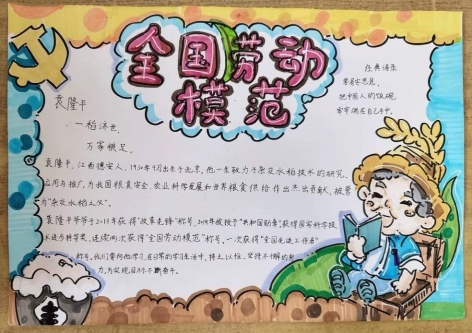 全国劳动
模范
经典语录
常居安思危
把中国人的饭碗
牢牢端在自己手中。
袁隆平
一稻济世，
万家粮足。
袁隆平，江西德安人，1930年9月出生于北京，他一生致力于杂交水稻技术的研究、
应用与推广，为我国粮食安全、农业科学发展和世界粮食供给作出杰出贡献，被誉
为“杂交水稻之父”。
袁隆平爷爷于2018年获得“改革先锋”称号，2019年被授予“共和国勋章”获得国家科学技
术进步科学奖，连续两次获得“全国劳动模范”称号，一次获得“全国先进工作者”
称号。我们要向他学习，在日常的学习生活中，持之以恒，坚持不懈的
力，为实现目标不断奋斗。